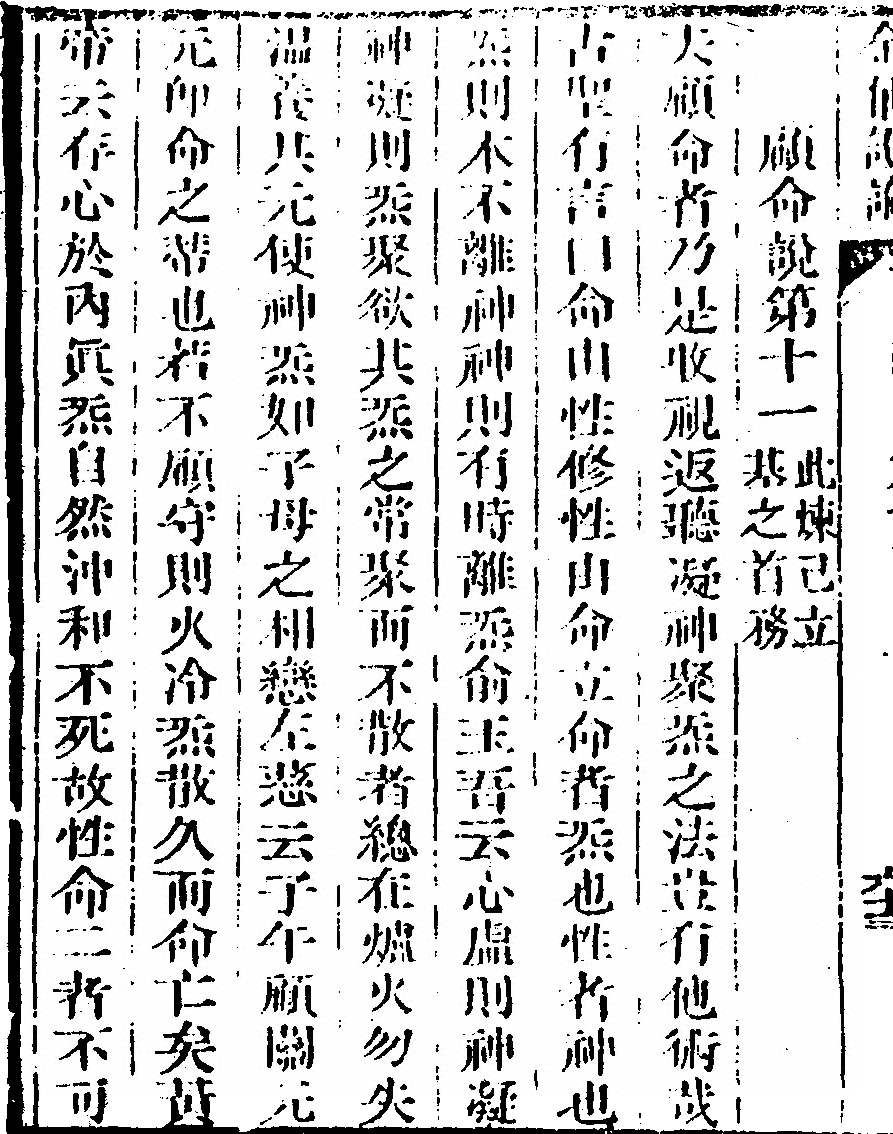 顧命說第十一 此煉己立基之首務
夫顧命者乃是收視返聽凝神聚炁之法豈有他術哉
古聖有言曰命由性修性由命立命者炁也性者神也
炁則不離神神則有時離炁俞玉吾云心虛則神凝
神凝則炁聚欲其炁之常聚而不散者總在爐火勿失
温養其元使神炁如子母之相戀左慈云子午顧關元
元即命之蒂也若不顧守則火冷炁散久而命亡矣黃
帝云存心於內眞炁自然沖和不死故性命二者不可